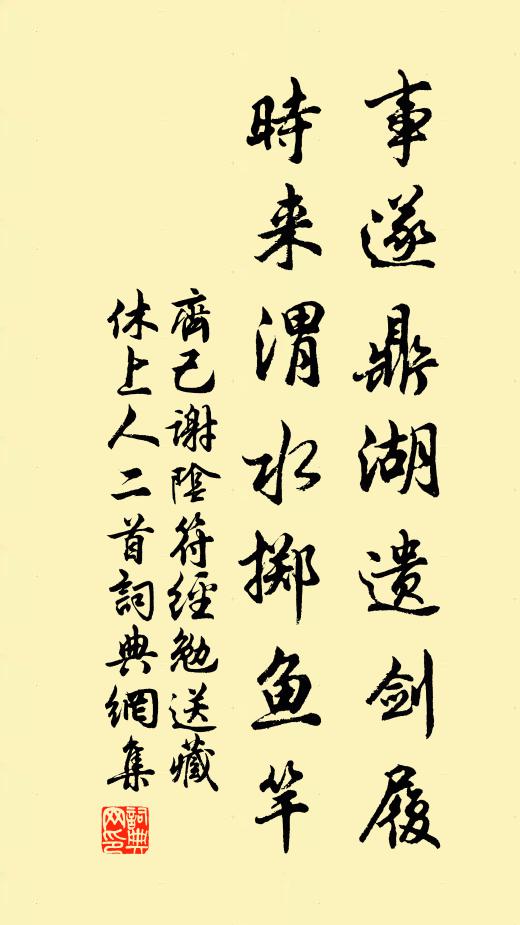 事遂鼎湖遗剑履
時来渭水掷鱼竿
齊己謝陰符經勉送藏
休上人二首詞典網集
詞典網印